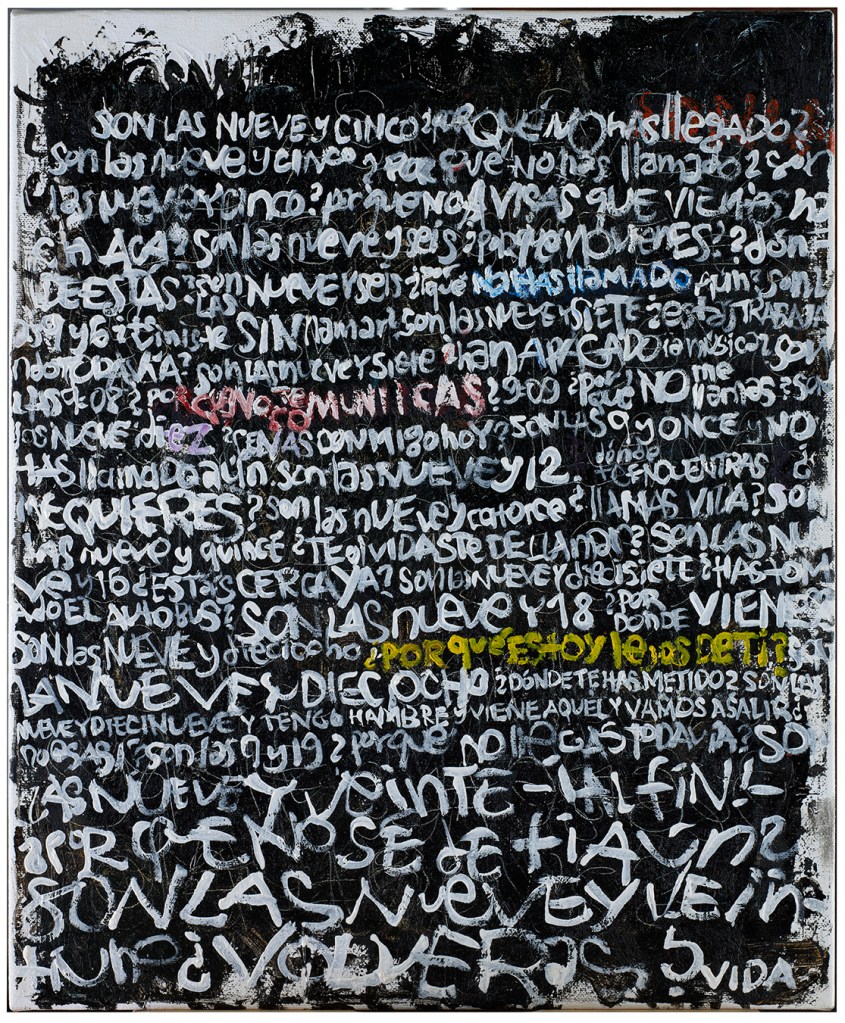 SON LAS NUEVE y CINCO ¿PORQUÉ NO hAs llegADO?
Son las nueve y cinco ? POR QUE NO has llamado? son
las nueve y cinco? por que NO AVISAS QUE VIENES
ACA? son las nueve y seis ¿porque no vIENES?? dón
DE ESTAS? son LAS NUEVE y seis ¿por qué NO HAS llAMADO AUN? son l
as 9 y 6 ? SIN llamar! son las NUEVE y SIETE ¿estas TRABAJA
TODAVIA? son LAS nueve y siete ? han APAGADO la música? son
LAS 9:08? POR QUE NO TE COMUNIICAS ? 9:09 ¿Por qué NO me llamas? so
las NUEVE diez ? CENAS CONMIGO hoy? SON LAS 9 y ONCE y NO
HAS llamado aún son las NUEVE y 12. dónde TE ENCUENTRAS ¿
ME QUIERES? son las nueve y catorce ? llAMAS VIDA? SON
LAS nueve y quince ? TE OlVIDASTE DE LLAMAR? SON LAS NU
eve y 16 ¿ESTAS CERCA YA? Son las NUEVE y diecisiete ? HAS TOM
ADO EL AUTOBUS? SON LAS nueve y 18 ? POR DONDE VIENES
SON las NUEVE y dieciocho ¿POR qué ESTOY lejos DE TI? SON
LA NUEVE Y DIECIOCHO ? DÓNDE TE HAS METIDO? SON LAS
NUEVE Y DIECINUEVE Y TENGO HAMBRE y VIENE AQUEL Y VAMOS A SALIR ¿
no es así? son las 9 y 19 ? porque NO llEGAS TODAVIA? SO
LAS NUEVE y veinTE - ¡Al fiN!-
¿POR QUE NO SE dE ti AÚn?
SON LAS NueVE y VEin-
tiUNO ¿VOLVERÁS ? VIDA